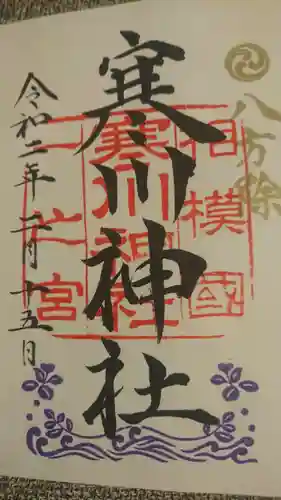 八方除
相模國
寒川神社
一之宮
寒川神社
令和二年二月十五日